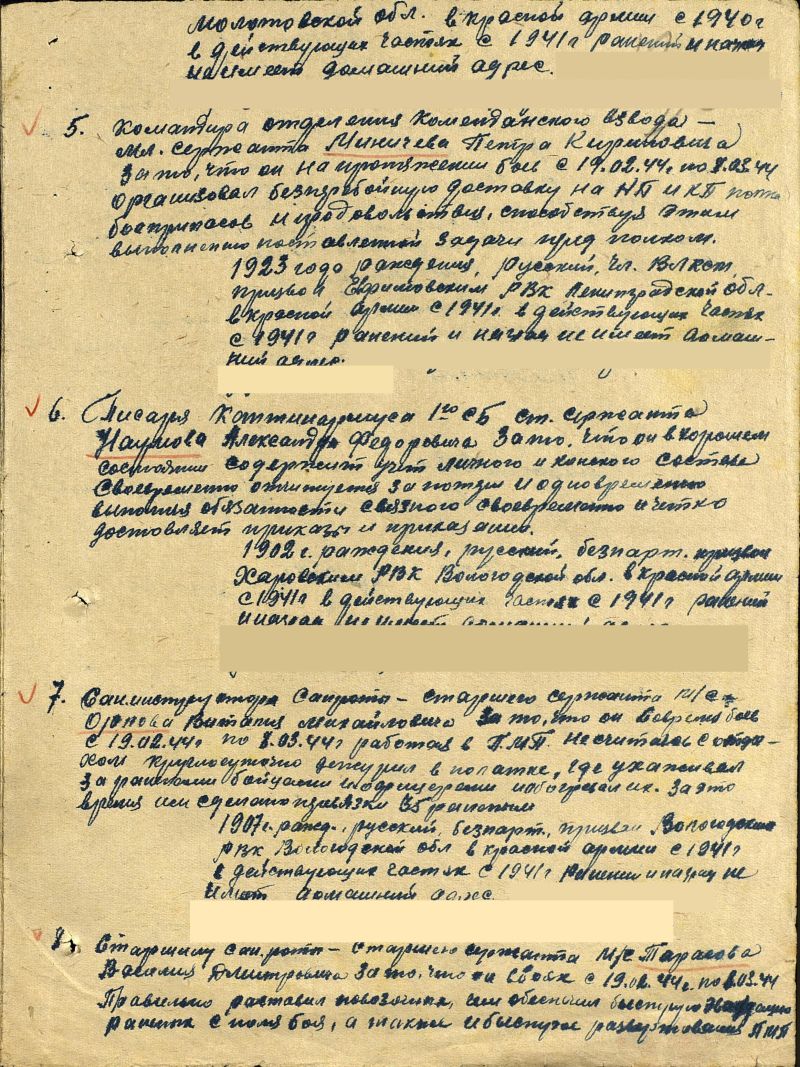 Молотовской обл. в красной армии с 1940г
в действующих частях с 1941г ранений и наград
не имеет домашний адрес.
5. Командира отделения Комендан́ского взвода —
мл. сержанта Миничева Петра Кириловича
За то, что он на протяжении боев с 19.02.44г по 8.03.44
организовал безперебойную доставку на НП и КП полка
боеприпасов и продовольствия, способствуя этим
выполнению поставленной задачи пред полком.
1923 года раждения, русский, чл. ВЛКСМ,
призван Ефимовским РВК Ленинградской обл-
в красной армии с 1941г. в действующих частях
с 1941г ранений и наград не имеет домаш-
ний адрес.
6. Писаря 1го СБ ст. сержанта
Наумова Александра Федоровича За то, что он в хорошем
состоянии содержит учет личного и конского состава
Своевременно отчитуется за потери и одновременно
выполняя обязанности связного своевременно и чётко
доставляет приказы и приказания.
1902 г. раждения, русский, безпарт. призван
Харовским РВК Вологодской обл. в красной армии
с 1941г в действующих частях с 1941г ранений
и наград не имеет домашний адрес
7. Санинструктора Санроты — старшего сержанта м/с
Виталия Михайловича За то, что он во время боев
с 19.02.44г по 8.03.44г работая в ПМП. Несчитаясь с отды-
хом круглосуточно дежурил в палатке, где ухаживал
за ранеными бойцами и офицерами и обогревал их. За это
время им сделано привязки 35 раненым
1907г. ражд., русский, безпарт., призван Вологодским
РВК Вологодской обл в красной армии с 1941г
в действующих частях с 1941г ранений и наград не
имеет домашний адрес.
8. Старшину сан.роты — старшего сержанта м/с Тарасова
Василия Дмитровича За то, что он в боях с 19.02.44г. по 8.03.44
Правильно раставил повозочных, чем обеспечил быструю эвакуацию
раненых с поля боя, а также и быстрое развертование ПМП